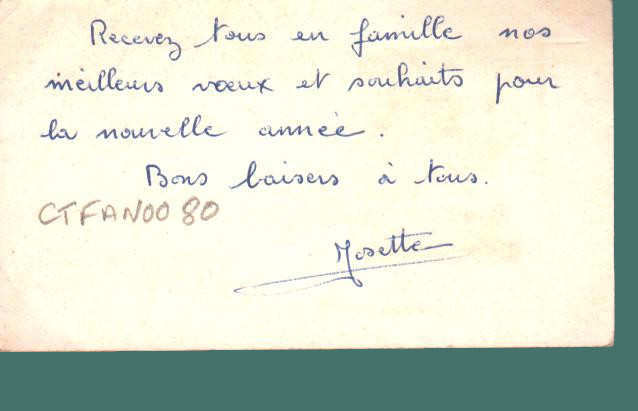 Recevez tous en famille nos
meilleurs vœux et souhaits pour
la nouvelle année.
Bons baisers à tous.
CTFAN00 80
Josette